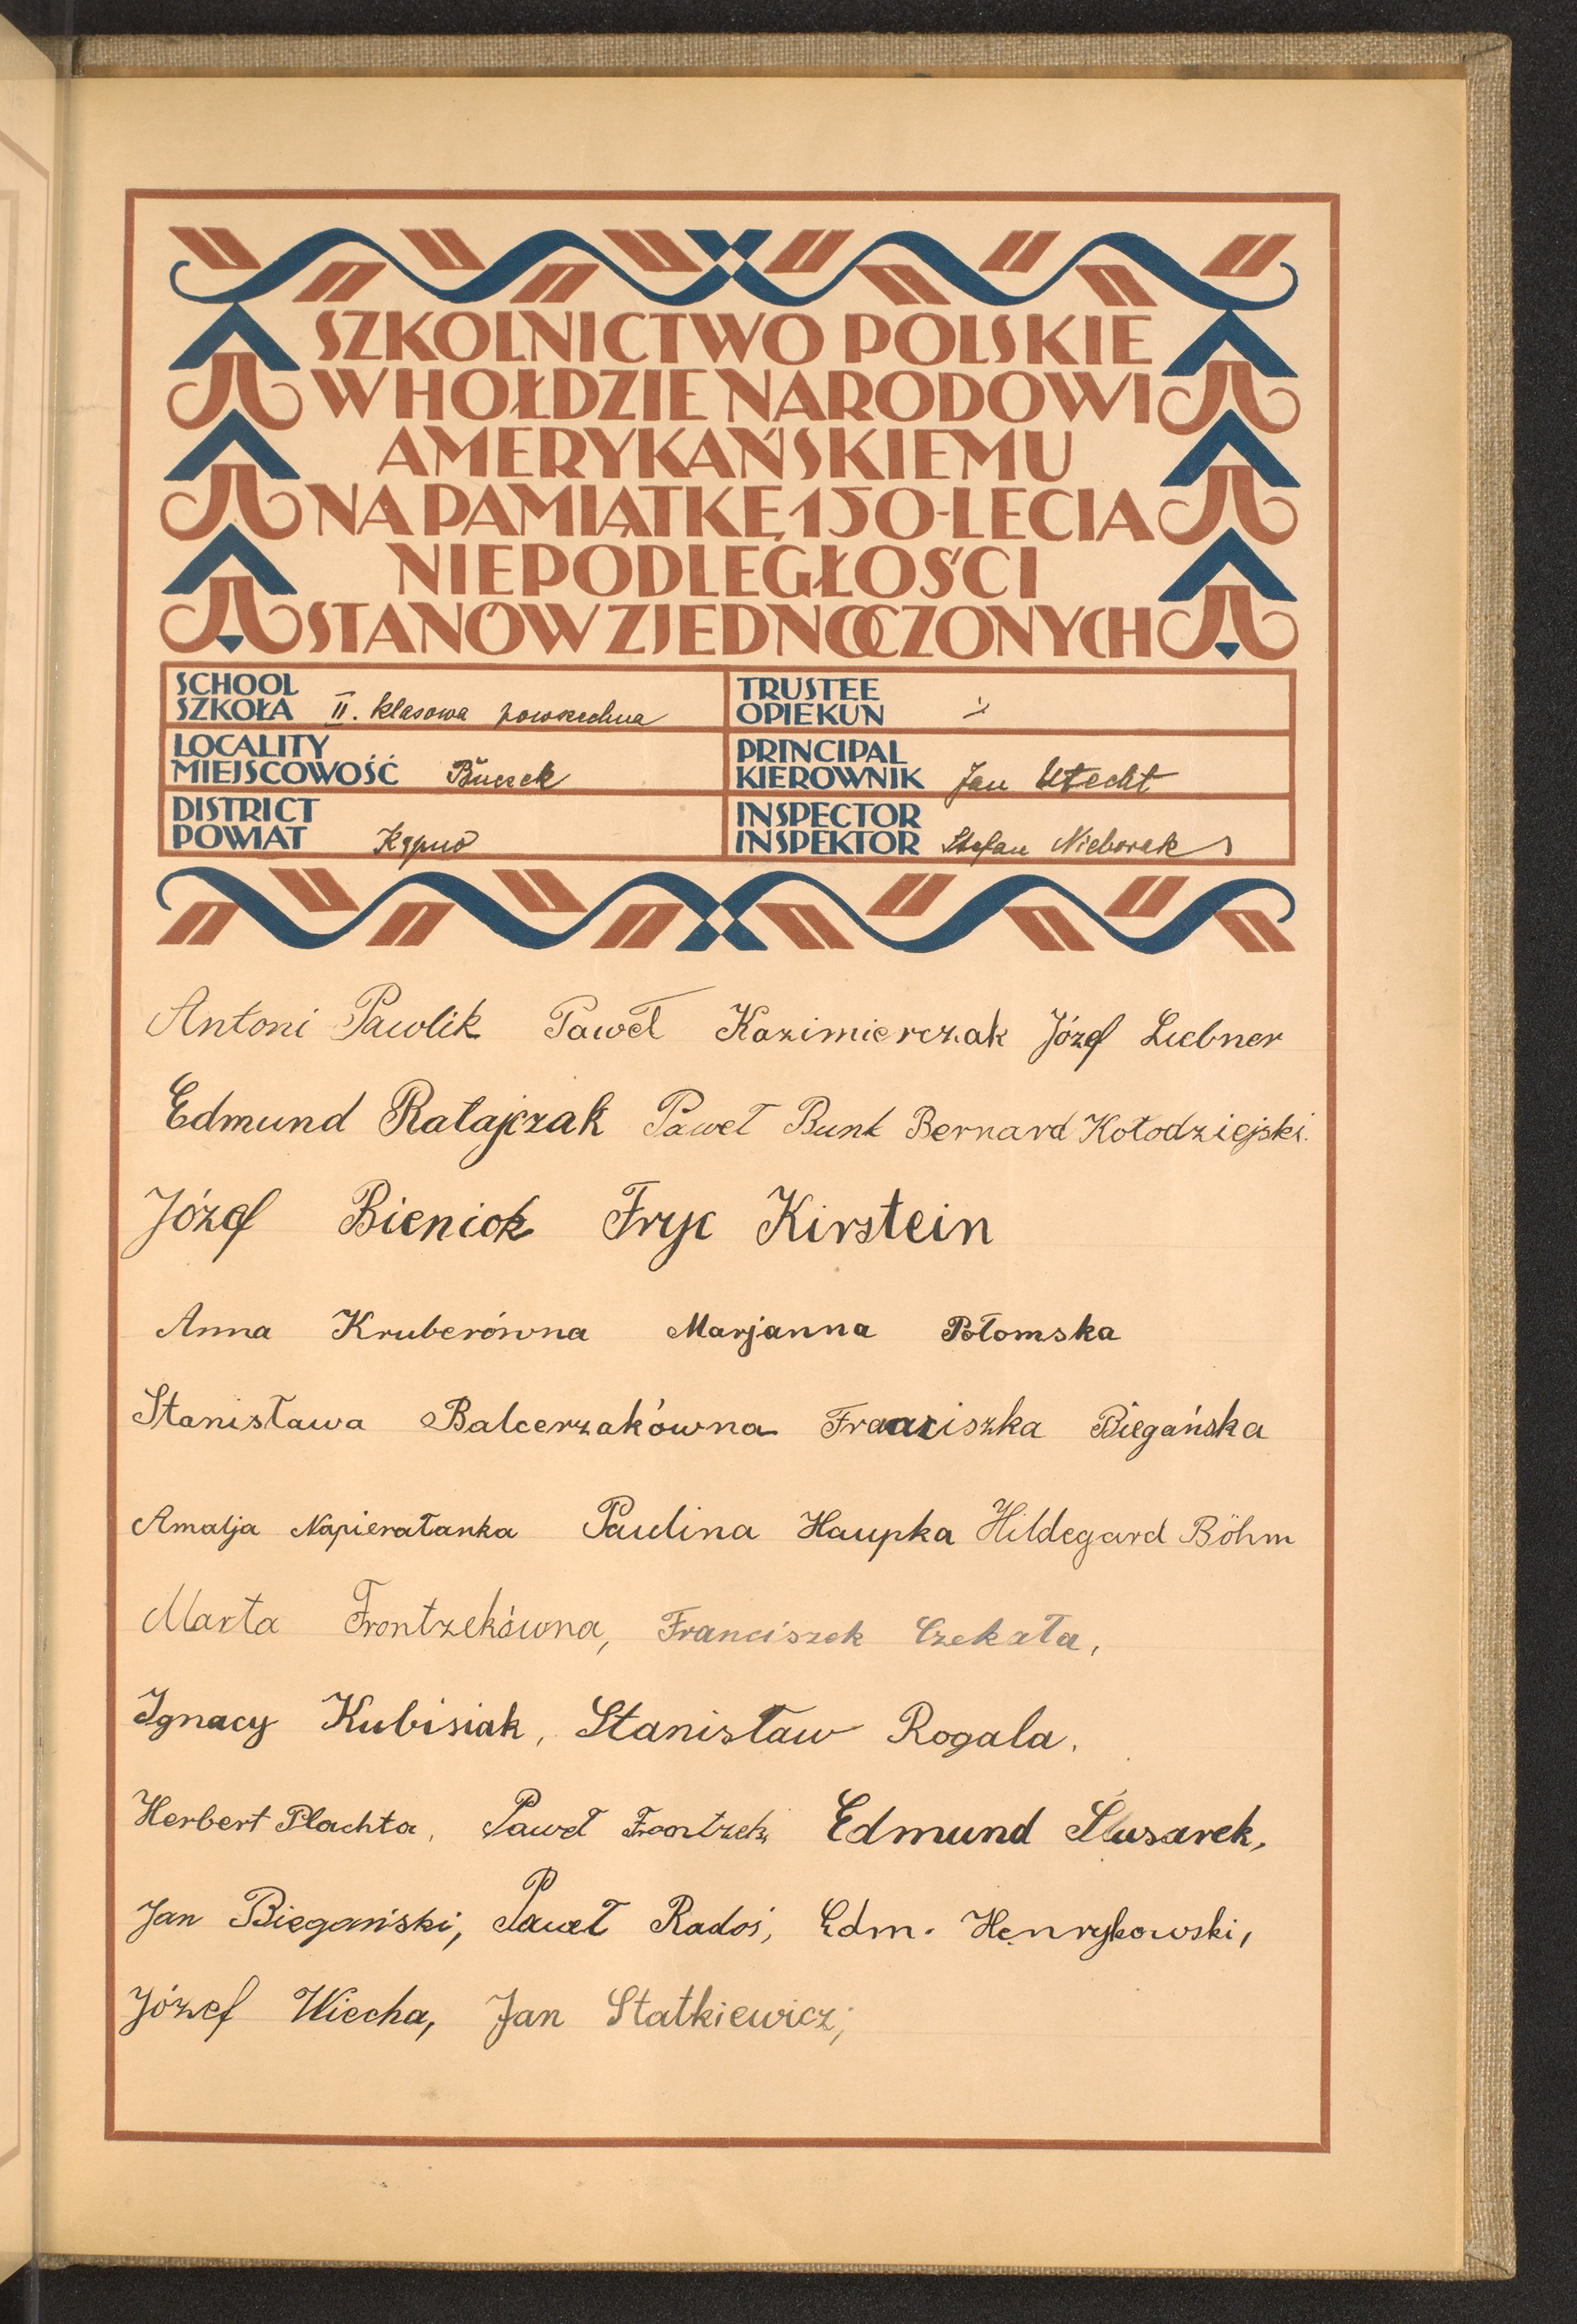 SZKOLNICTWO POLSKIE
W HOŁDZIE NARODOWI
AMERYKAŃSKIEMU
NA PAMIĄTKĘ 150-LECIA
NIEPODLEGŁOŚCI
STANÓW ZJEDNOCZONYCH
SCHOOL
SZKOŁA II. klasowa powszechna
TRUSTEE
OPIEKUN
LOCALITY
MIEJSCOWOŚĆ Buczek
PRINCIPAL
KIEROWNIK Jan Utecht
DISTRICT
POWIAT Kępno
INSPECTOR
INSPEKTOR Stefan Nieborak
Antoni Pawlik Paweł Kazimierczak Józef Liebner
Edmund Ratajczak Paweł Bunk Bernard Kołodziejski.
Józef Bieniok Fryc Kirstein
Anna Kruberówna Marjanna Połomska
Stanisława Balcerzakówna Franciszka Biegańska
Amalja Napierałanka Paulina Haupka Hildegard Böhm
Marta Frontzekówna, Franciszek Czekała,
Ignacy Kubisiak, Stanisław Rogala.
Herbert Plachta, Paweł Frontzek, Edmund Ślusarek,
Jan Biegański, Paweł Radoś, Edm. Henrykowski,
Józef Wiecha, Jan Statkiewicz;